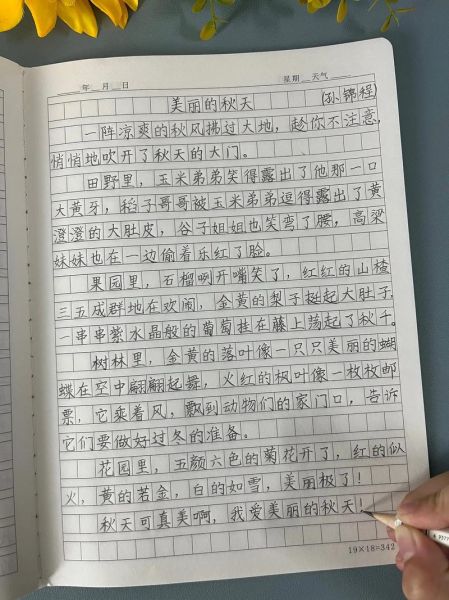 年 月 日 星期 天气
美丽的秋天 (孙锦程)
一阵凉爽的秋风拂过大地，趁你不注意，
悄悄地吹开了秋天的大门。
田野里，玉米弟弟笑得露出了他那一口
大黄牙，稻子哥哥被玉米弟弟逗得露出了黄
澄澄的大肚皮，谷子姐姐也笑弯了腰，高粱
妹妹也在一边偷着乐红了脸。
果园里，石榴咧开嘴笑了，红红的山楂
三五成群地在欢闹，金黄的梨子挺起大肚子，
一串串紫水晶般的葡萄挂在藤上荡起了秋千。
树林里，金黄的落叶像一只只美丽的蝴
蝶在空中翩翩起舞，火红的枫叶像一枚枚邮
票，它乘着风，飘到动物们的家门口，告诉
它们要做好过冬的准备。
花园里，五颜六色的菊花开了，红的似
火，黄的若金，白的如雪，美丽极了！
秋天可真美啊，我爱美丽的秋天！
19×18=342